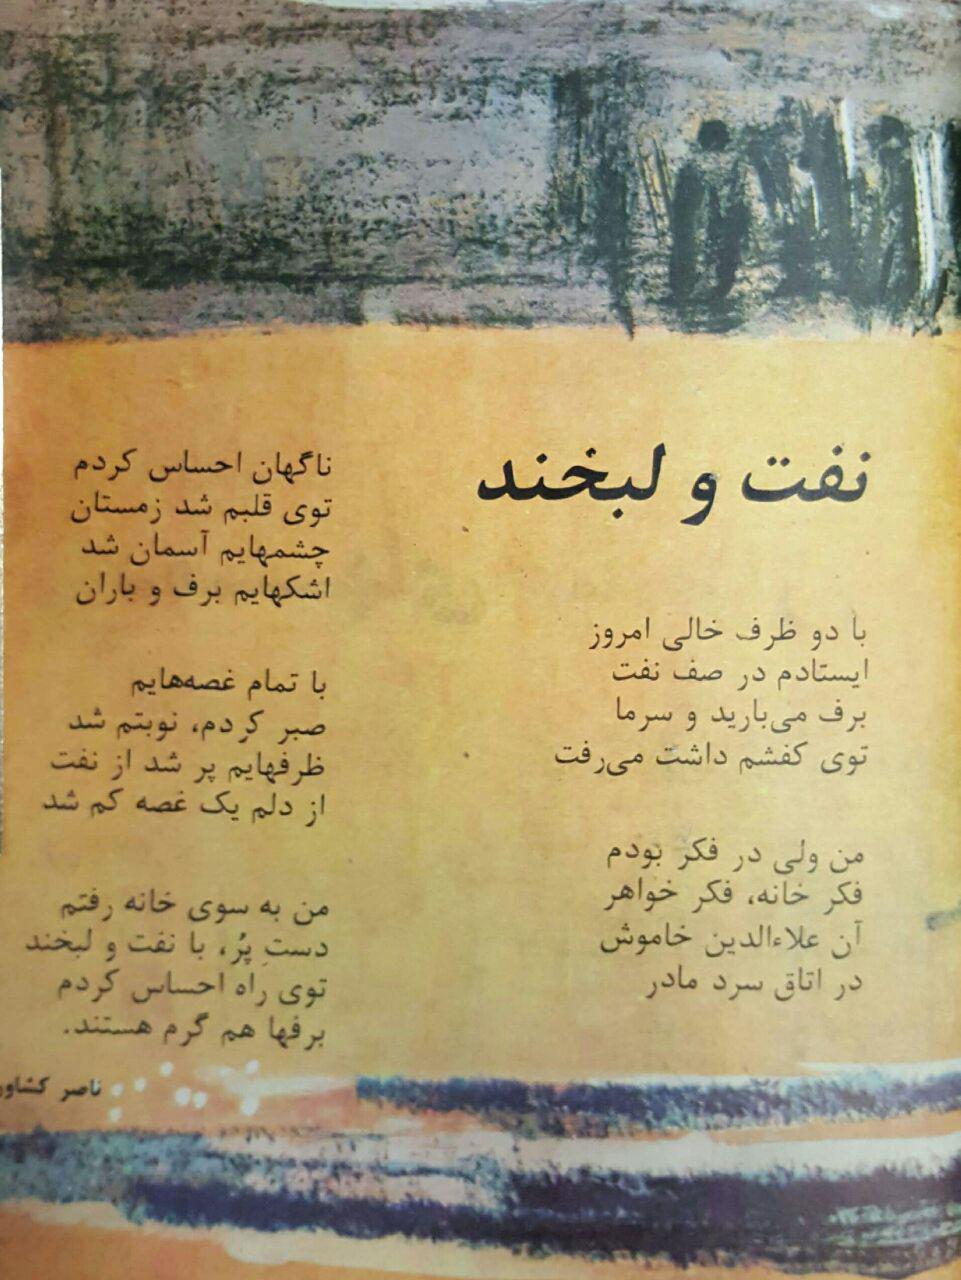 نفت و لبخند
با دو ظرف خالی امروز
ایستادم در صف نفت
برف می‌بارید و سرما
توی کفشم داشت می‌رفت
من ولی در فکر بودم
فکر خانه، فکر خواهر
آن علاءالدین خاموش
در اتاق سرد مادر
ناگهان احساس کردم
توی قلبم شد زمستان
چشمهایم آسمان شد
اشکهایم برف و باران
با تمام غصه‌هایم
صبر کردم، نوبتم شد
ظرفهایم پر شد از نفت
از دلم یک غصه کم شد
من به سوی خانه رفتم
دستِ پُر، با نفت و لبخند
توی راه احساس کردم
برفها هم گرم هستند.
ناصر کشاور